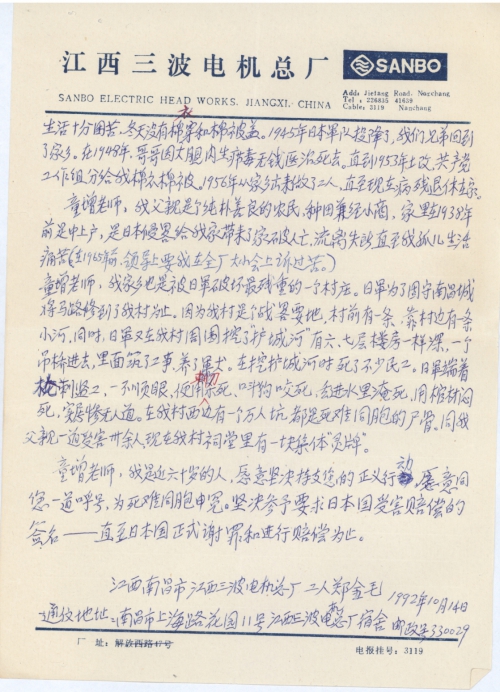 江西三波电机总厂
SANBO
SANBO ELECTRIC HEAD WORKS. JIANGXI. CHINA
Add: Jiefang Road. Nanchang
Tel : 226835 41659
Cable: 3119 Nanchang
衣
生活十分困苦,冬天没有棉和棉被盖。1945年日本军队投降了,我们兄弟回到
了家乡。在1948年,哥哥因大腿内生病毒无钱医治死去。直到1953年土改,共产党
工作组分给我棉衣棉被。1956年从家乡出来做了工人,直至现在病残退休在家。
童增老师,我父亲是个纯朴善良的农民,种田兼经小商,家里在1938年
前是中上户,是日本侵略给我家带来了家破人亡,流离失所直至我孤儿生活
痛苦(在1965年前,领导上要我在全厂大小会上诉过苦。)
童增老师,我家乡也是被日军破坏最残重的一个村庄。日军为了固守南昌城
将马路修到了我村为止。因为我村是个战略要地,村前有一条,靠村边有一条
小河,同时,日军又在我村周围挖了"护城河"有六、七层楼房一样深,一个
吊桥进去,里面筑了工事,养了军犬。在挖护城河时死了不少民工。日军端着
刺刀监工,一不顺眼,便用刺刀死、叫狗咬死、丢进水里淹死、用棺材闷
死,实属惨无人道。在我村西边有个万人坑,都是死难同胞的尸骨。同我
父亲一道受害卅余人,现在我村祠堂里有一块集体"灵牌"。
童增老师,我是近六十岁的人,愿意坚决支持您的正义行动,愿意同
您一道呼号,为死难同胞申冤。坚决参予要求日本国受害赔偿的
签名——直至日本国正式谢罪和进行赔偿为止。
江西南昌市江西三波电机总厂 工人郑金毛
1992年10月14日
通信地址:南昌市上海路花园11号江西三波电机总厂宿舍 邮政号330029
厂 址:解放西路47号
电报挂号:3119